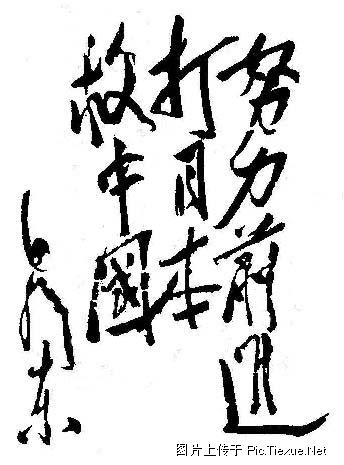 努力前進
打日本
救中國
毛泽东
图片上传于 Pic.Tiexue.Net